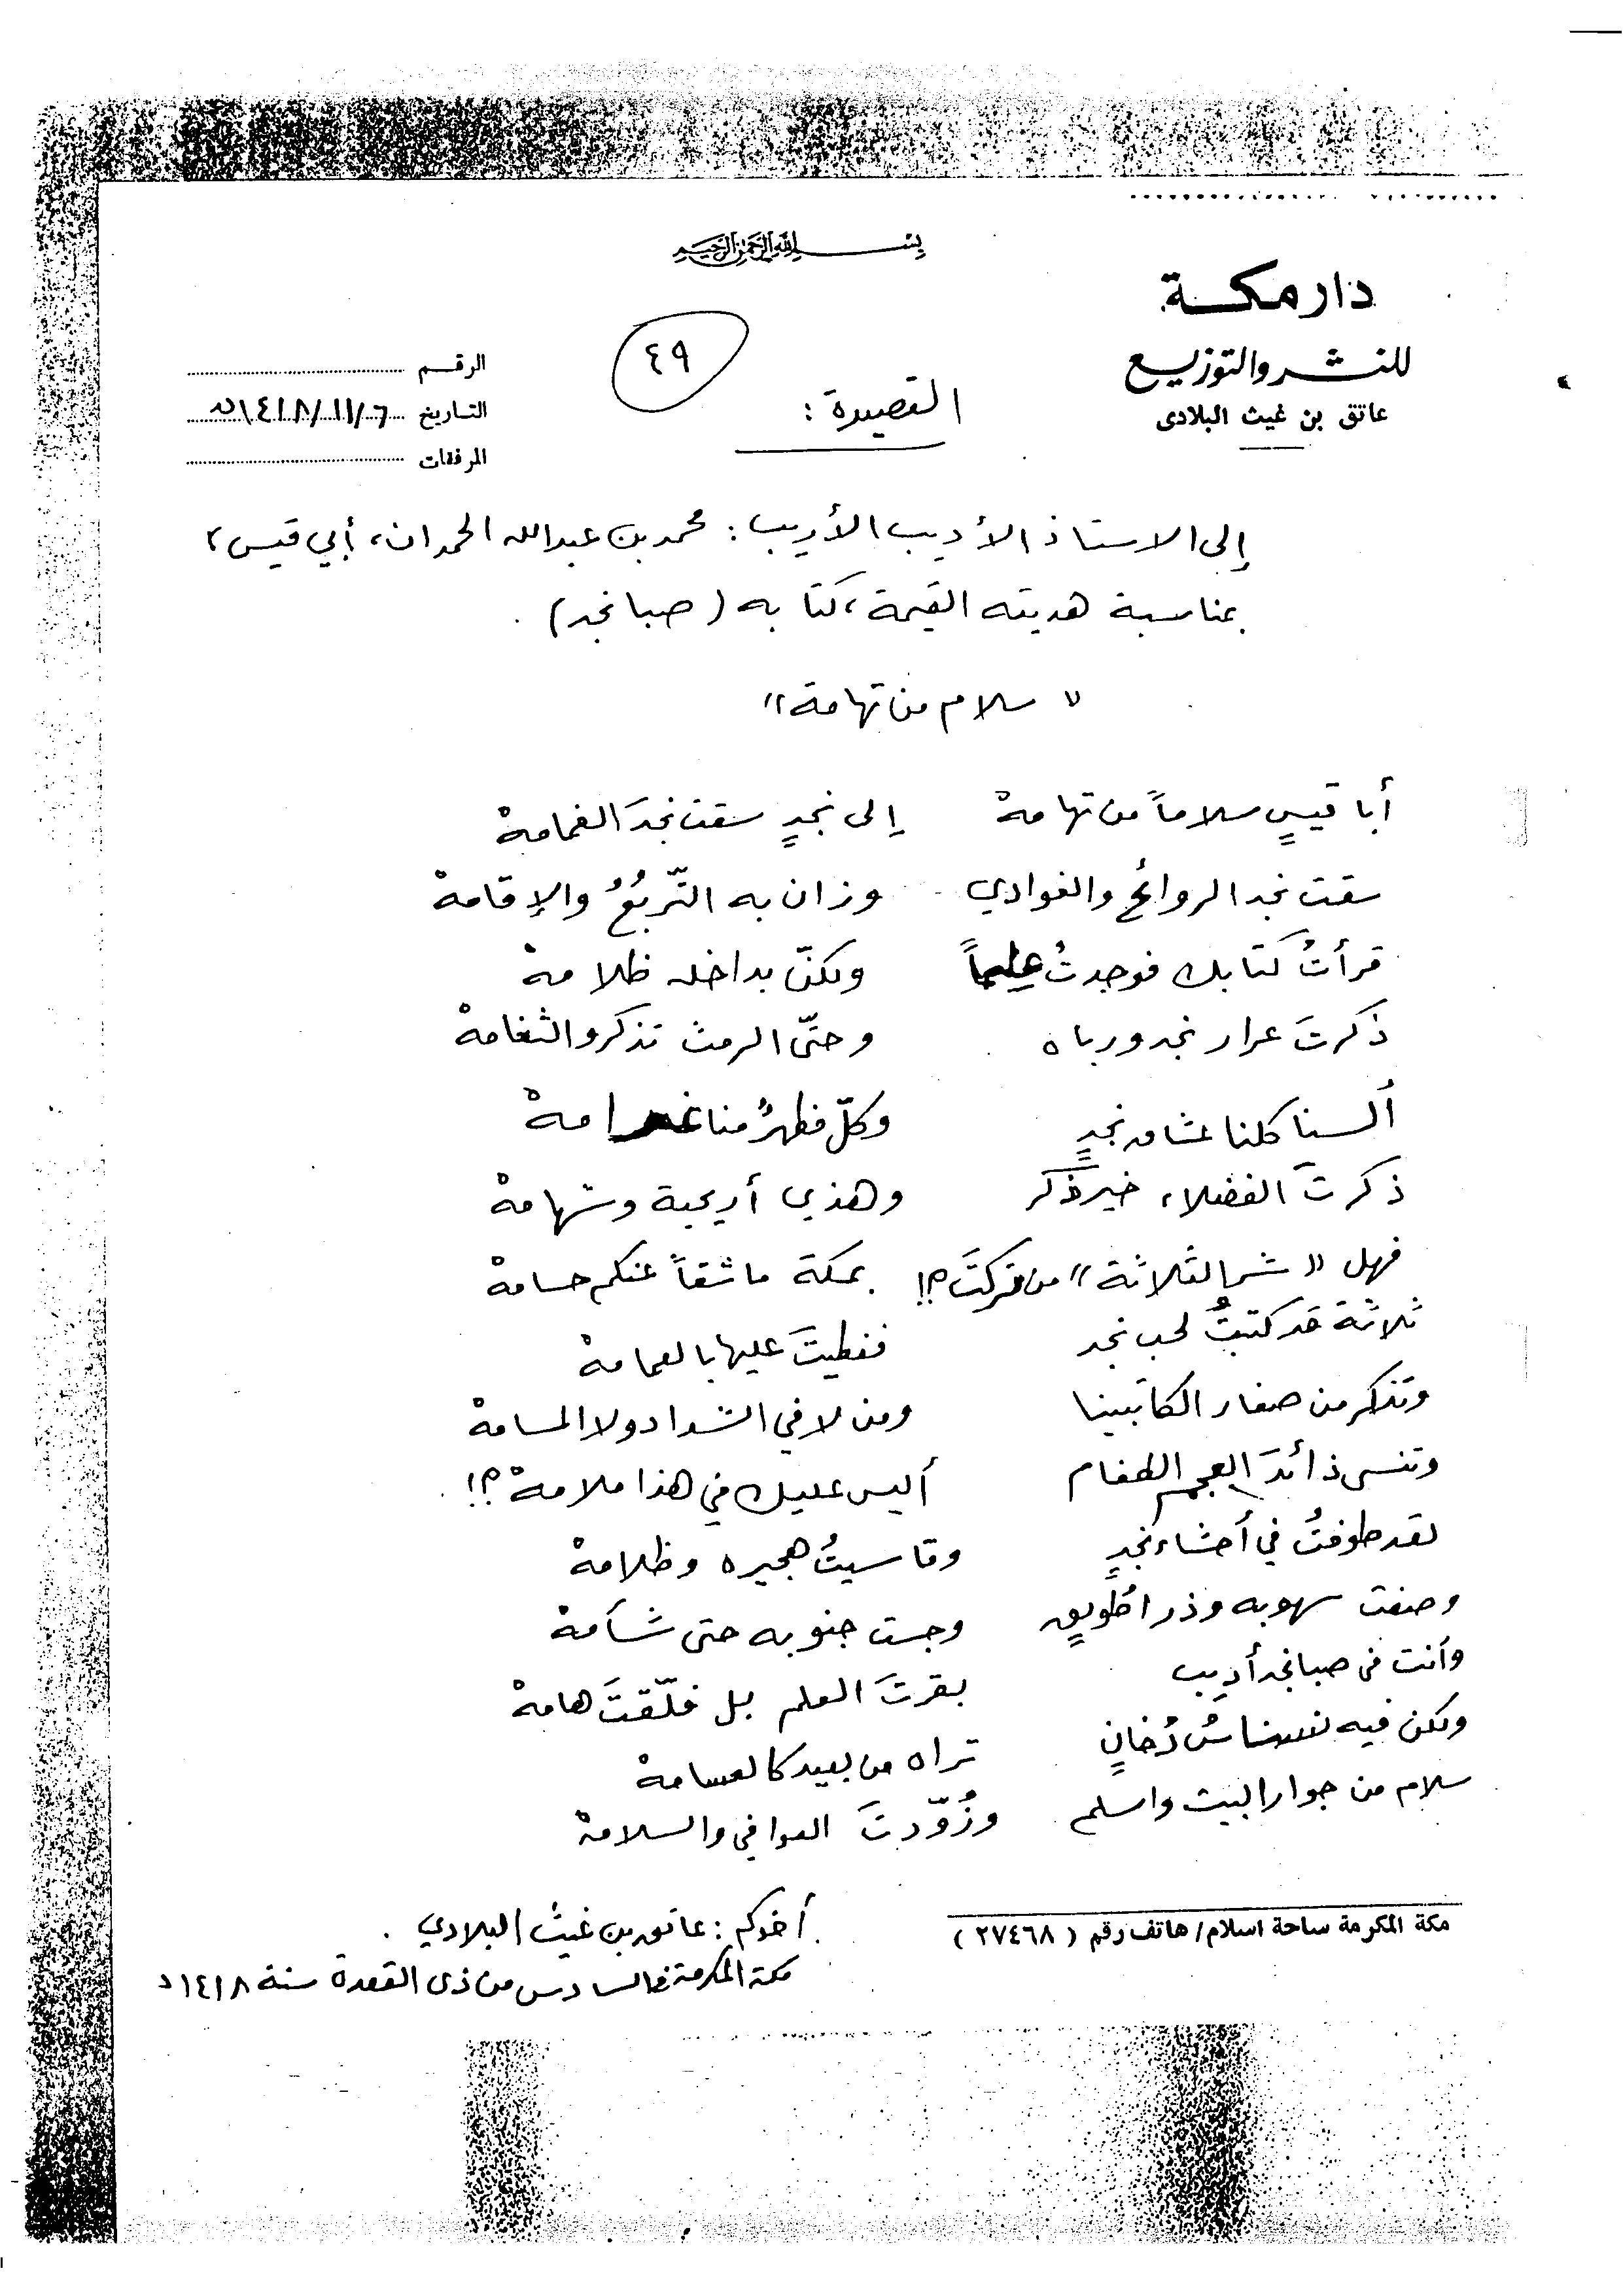 بسم الله الرحمن الرحيم
دار مكة
للنشر والتوزيع
عاتق بن غيث البلادى
الرقم
التاريخ ٦/١١/١٤١٨هـ
المرفقات
٤٩
القصيدة :
إلى الاستاذ الأديب الأريب : محمد بن عبدالله الحمدان، أبي قيس،
بمناسبة هديته القيمة، كتابه (صبا نجد) .
« سلام من تهامة »
أبا قيسٍ سلاماً من تهامهْ إلى نجدٍ سقت نجدَ الغمامهْ
سقت نجد الروائح والغوادي وزان به التّربُعُ والإقامهْ
قرأتُ كتابك فوجدتُ علماً ولكنّ بداخله ظلامهْ
ذكرتَ عرار نجد ورباه وحتّى الرمث تذكر والثغامهْ
ألسنا كلنا عشاق نجدٍ وكلّ مظهرٌ منا غرامهْ
ذكرتَ الفضلاء خير ذكر وهذي أريحية وشهامهْ
فهل « شم الثلاثة » من تركتَ؟! بمكة عاشقاً عنكم حسامهْ
ثلاثة قد كتبتُ لحب نجد فغطيتَ عليها بالعمامهْ
وتذكر من صغار الكاتبينا ومن لا في السدا دولا المسامهْ
وتنسى ذائدَ العجم الطغام أليس عليك في هذا ملامهْ؟!
لقد طوفتُ في أحشاء نجدٍ وقاسيتُ هجيره وظلامهْ
وصفت سهوبه وذرا طُويقٍ وجست جنوبه حتى شآمهْ
وأنت في صبا نجد أديب بقرتَ العلم بل فلّقتَ هامهْ
ولكن فيه نسناسُ دُخانٍ تراه من بعيد كالعسامهْ
سلام من جوار البيت واسلم وزُوّدتَ العوافي والسلامهْ
أخوكم : عاتق بن غيث البلادي .
مكة المكرمة في السادس من ذي القعدة سنة ١٤١٨هـ
مكة المكرمة ساحة اسلام / هاتف رقم ( ٢٧٤٦٨ )